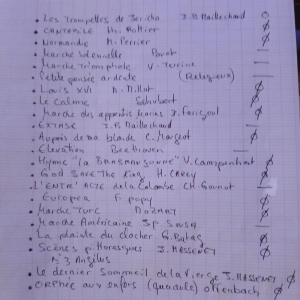 Les Trompettes de Jericho J.B Maillochaud
CANTEMISE Th. Rollier
Normandie M. Perrier
Marche Solennelle
Marche Triomphale V. Turine
Petite pensée ardente (Religieux)
Louis XVI A. Millot
Le Calme Schubert
Marche des apprentis J. Farigoul
EXTASE J.B Maillochaud
Auprès de ma blonde C. Margeot
Elevation Beethoven
Hymne "la BANSMARSONNE" V. Carpentrat
GOD SAVE The King H. CAREY
L'ENTR'ACTE de la Colombe CH. Gounod
Europea F. popy
MARCHE TURC MOZART
MARCHE Américaine J.P SOUSA
La plainte du clocher G.
Scènes p. Moresques J. MASSENEY
N°3 Angelus
Le dernier Sommeil de la Vierge J. MASSENEY
ORPHEE AUX enfers (quadrille) OFFENBACH